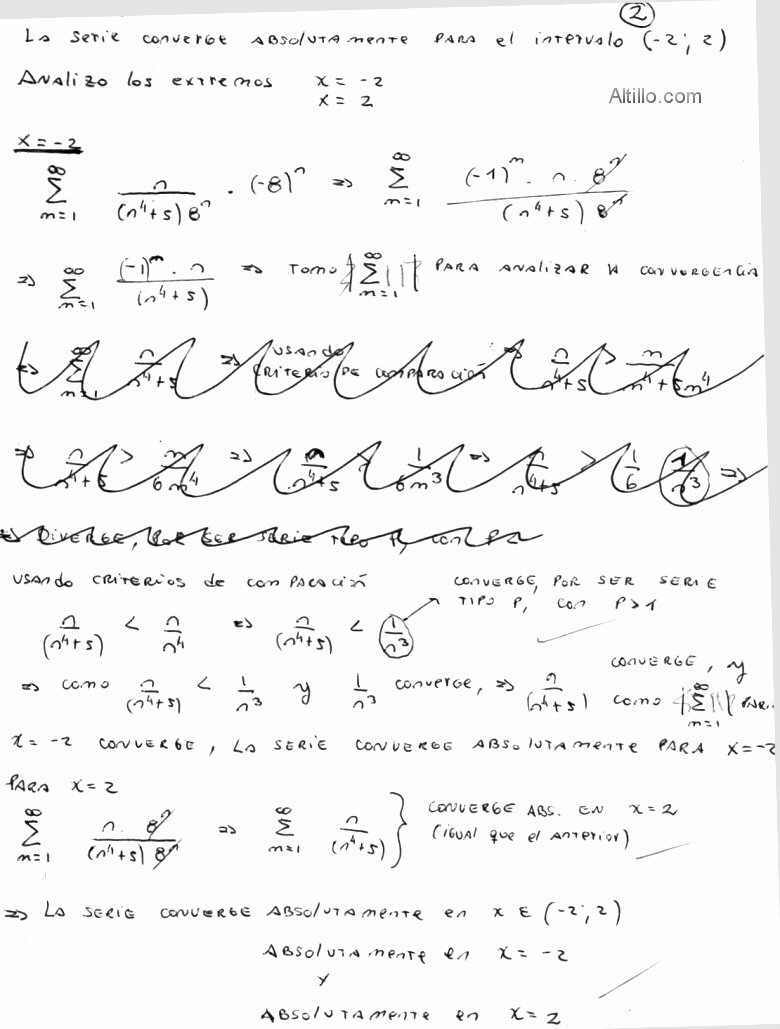 ②
La serie converge absolutamente para el intervalo (-2; 2)
Analizo los extremos x = -2
x = 2
Altillo.com
x = -2
∞ ∑ n=1 n/((n⁴+5) 8ⁿ) · (-8)ⁿ ⇒ ∞ ∑ n=1 ((-1)ⁿ · n · 8ⁿ)/((n⁴+5) 8ⁿ)
⇒ ∞ ∑ n=1 ((-1)ⁿ · n)/(n⁴+5) ⇒ Tomo |∞ ∑ n=1| para analizar la convergencia
⇒ ∞ ∑ n=1 n/(n⁴+5) ⇒ usando criterio de comparación ⇒ n/(n⁴+5) > n/(n⁴+5n⁴)
⇒ n/(n⁴+5) > n/(6n⁴) ⇒ n/(n⁴+5) > 1/(6n³) ⇒ n/(n⁴+5) > 1/6 (1/n³) ⇒
⇒ Diverge, por ser serie tipo P, con
usando criterios de comparación converge, por ser serie
tipo P, con P>1
n/(n⁴+5) < n/n⁴ ⇒ n/(n⁴+5) < 1/n³
⇒ como n/(n⁴+5) < 1/n³ y 1/n³ converge, ⇒ n/(n⁴+5) converge, y
como |∞ ∑ n=1| para
x = -2 converge, la serie converge absolutamente para x=-2
Para x = 2
∞ ∑ n=1 (n · 8ⁿ)/((n⁴+5) 8ⁿ) ⇒ ∞ ∑ n=1 n/(n⁴+5) } converge abs. en x = 2
(igual que el anterior)
⇒ La serie converge absolutamente en x ∈ (-2; 2)
absolutamente en x = -2
y
absolutamente en x = 2